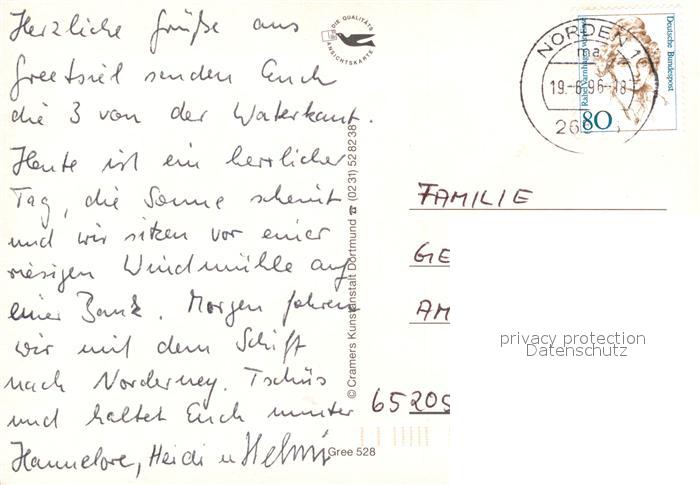 Herzliche Grüße aus
Greetsiel senden Euch
die 3 von der Waterkant.
Heute ist ein herrlicher
Tag, die Sonne scheint
und wir sitzen vor einer
riesigen Windmühle auf
einer Bank. Morgen fahren
wir mit dem Schiff
nach Norderney. Tschüs
und haltet Euch munter
Hannelore, Heidi u Helmut
DIE QUALITÄTS
ANSICHTSKARTE
© Cramers Kunstanstalt Dortmund ☎ (0231) 528238
Gree 528
NORDEN 1
ma
19.-6.96-18
26
Deutsche Bundespost
Rahel Varnhagen von Ense
80
FAMILIE
GE
AM
65205
privacy protection
Datenschutz